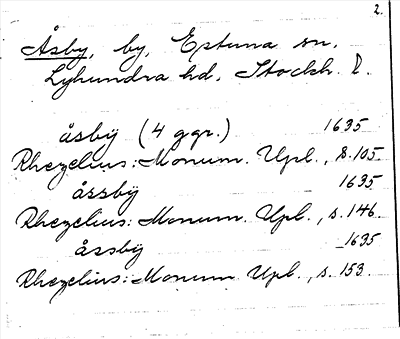 2.
Åsby, by, Estuna sn,
Lyhundra hd, Stockh. l.
åsbÿ (4 ggr.) 1635
Rhezelius: Monum. Upl., s. 105
åssbÿ 1635
Rhezelius: Monum. Upl., s. 146.
åssbÿ 1635
Rhezelius: Monum Upl., s. 153.